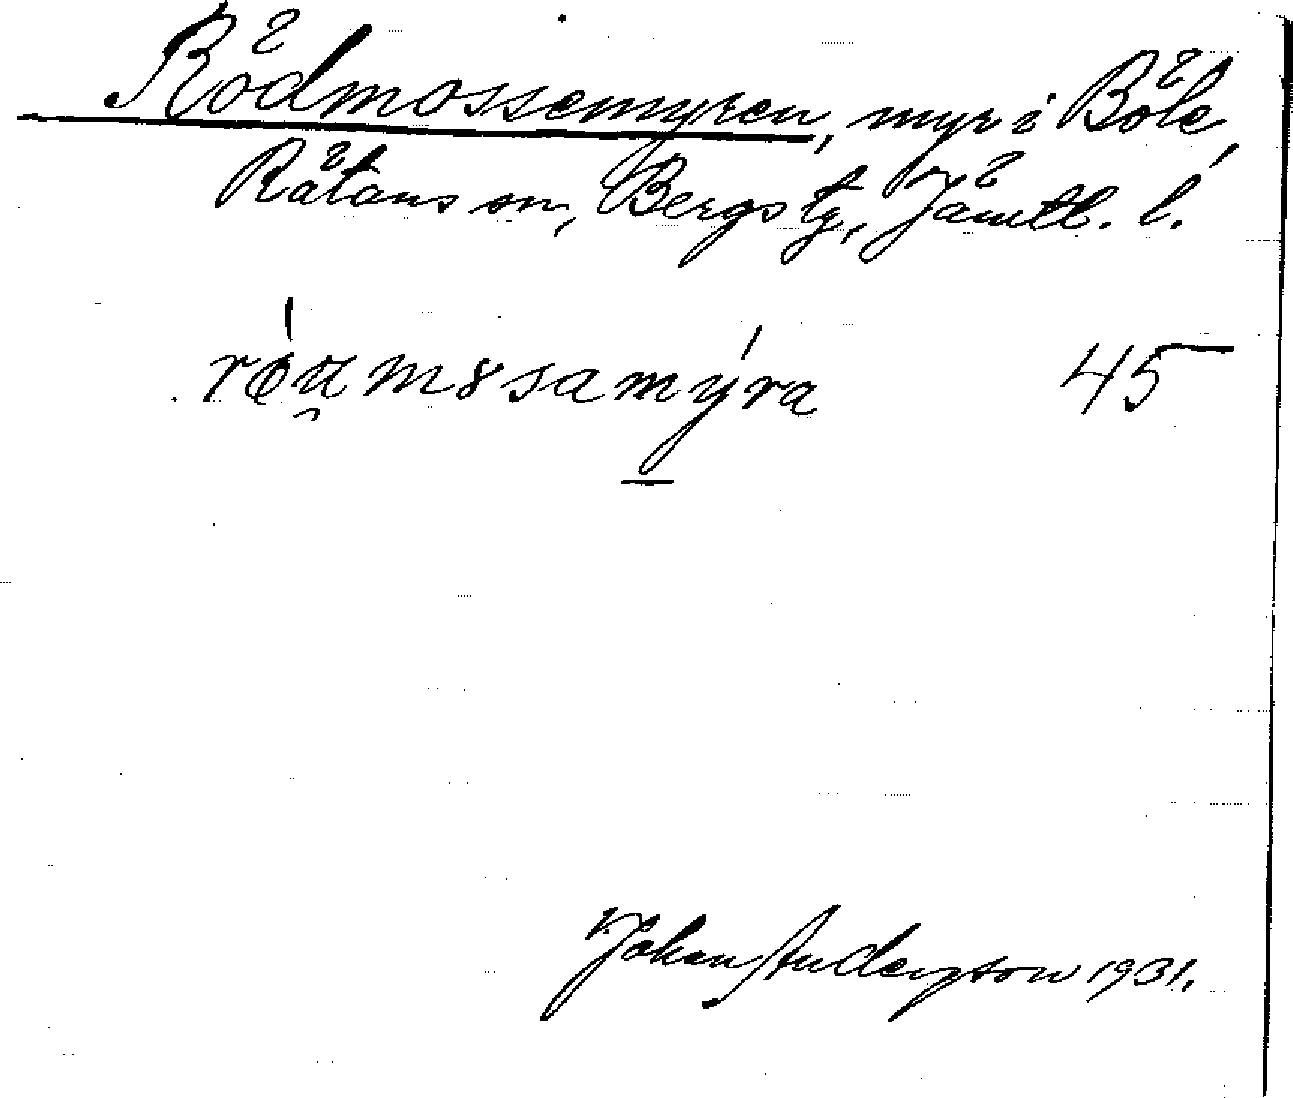 Rödmossemyren, myr i Böle,
Rätans sn, Bergs tg, Jämtl. l.
45
Johan Anderzson 1931.